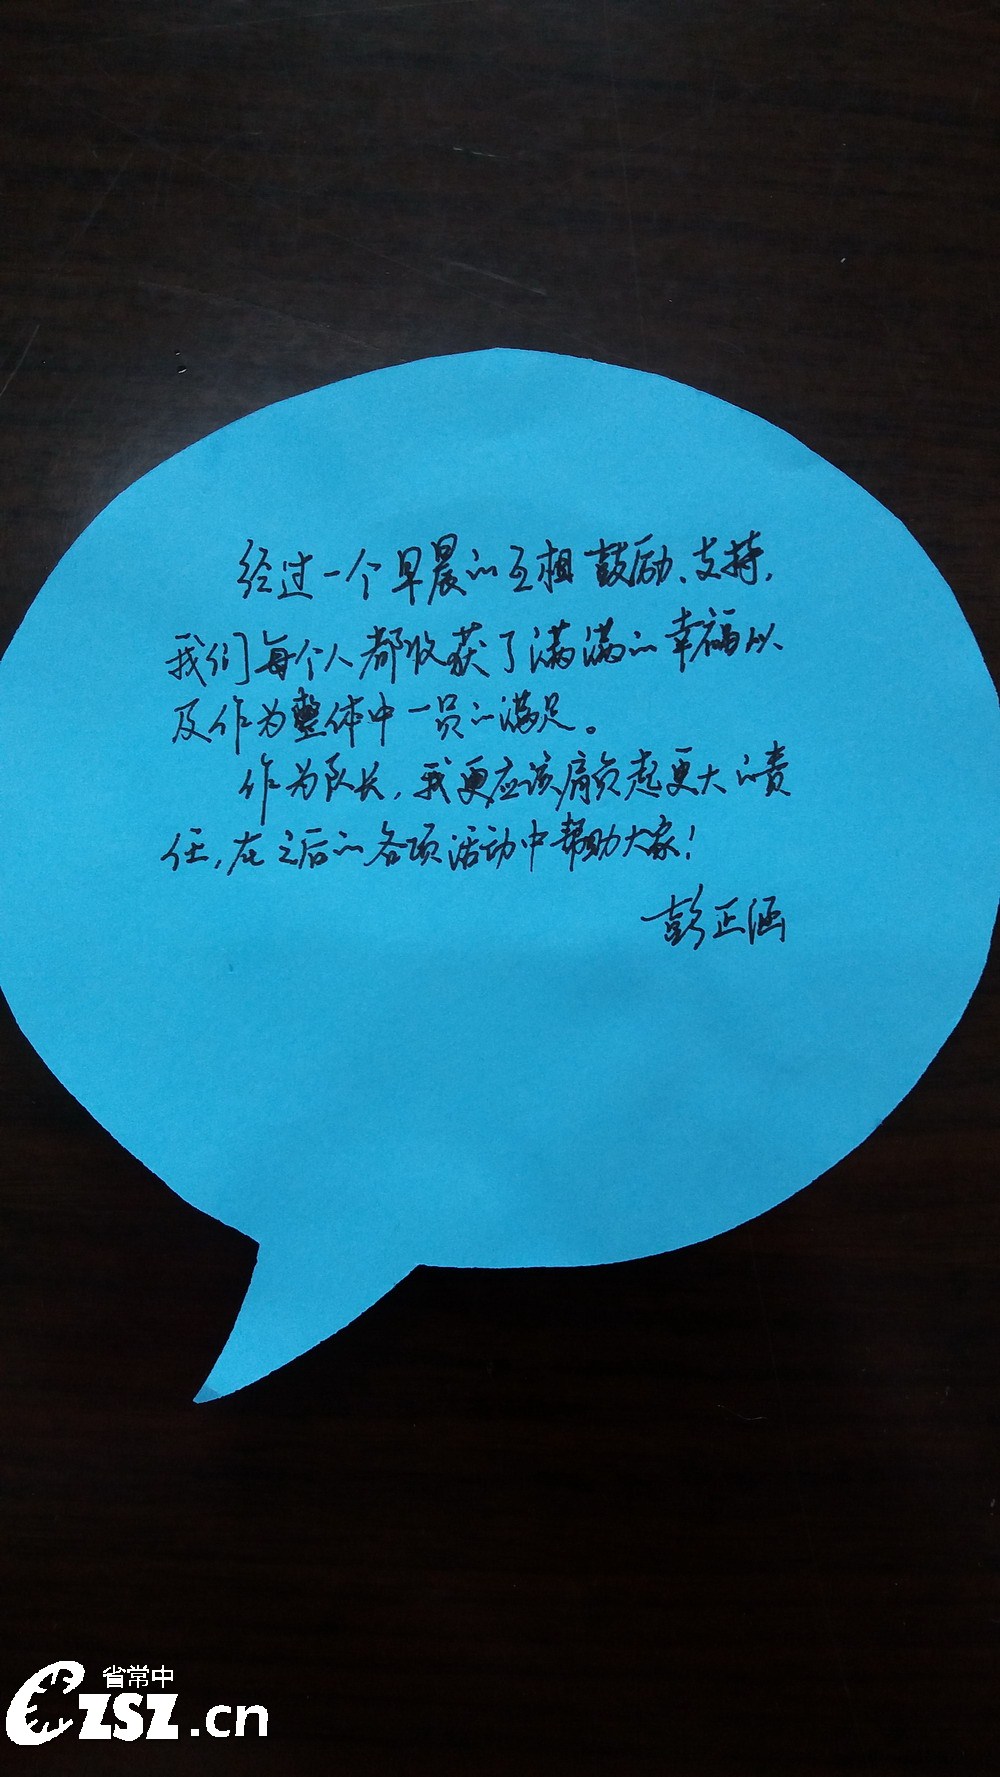 经过一个早晨的互相鼓励、支持，
我们每个人都收获了满满的幸福以
及作为整体中一员的满足。
作为队长，我更应该肩负起更大的责
任，在之后的各项活动中帮助大家！
彭正涵
省常中
CZSZ.cn